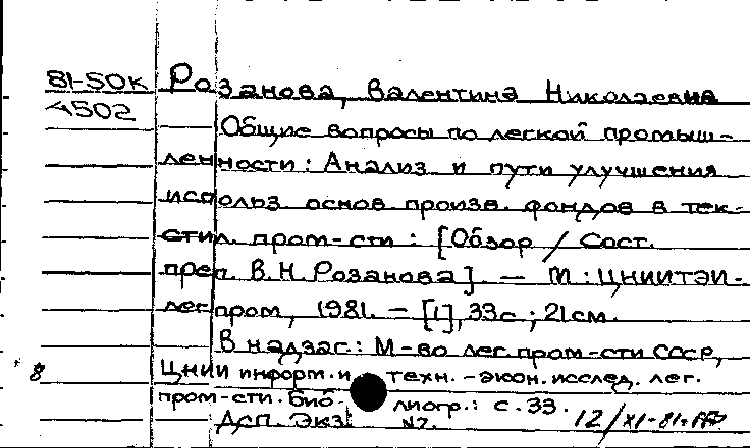 81-50к Розанова, Валентина Николаевна
4502
Общие вопросы по легкой промыш-
ленности: Анализ и пути улучшения
использ. основ. произв. фондов в тек-
стил. пром-сти : [Обзор / Сост.
преп. В.Н. Розанова]. — М : ЦНИИТЭИ-
легпром, 1981. — [1], 33с ; 21см.
В надзаг.: М-во лег. пром-сти СССР,
8 ЦНИИ информ. и техн.-экон. исслед. лег.
пром-сти. Библиогр.: с. 33.
ДСП. Экз. №7. 12/XI-81